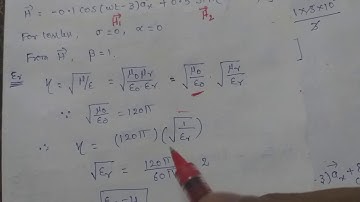 H⃗ = -0.1 cos(ωt-3)a⃗x + 0.5
H₁⃗ H₂⃗
For lossless, σ=0, α=0
From H⃗, β=1.
1×3×10
εr
η = √μ/ε = √μ₀μr/ε₀·εr = √μ₀/ε₀ · √μr/εr
∵ √μ₀/ε₀ = 120π
∴ η = (120π)(√1/εr)
√εr = 120π/60π 2
εr = 4
-3)a⃗x +